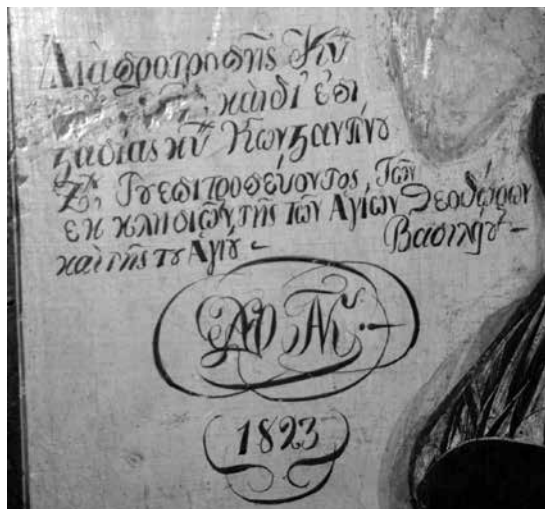 Διὰ προτροπῆς Κῦ
καὶ δι' ἐπι
ϛασίας κῦ Κωνϛαντίνȣ
Τȣ ἐπιτροπεύοντος, Τῶν
ἐκκλησιῶν τῆς τῶν Ἁγίων Θεοδώρων
καὶ τῆς τȣ Ἁγίȣ - Βασιλείȣ -
1823